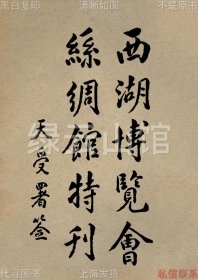 黑白复印
清晰如图
不是原书
西湖博覽會
絲綢館特刊
天受署签
代寻图书
上海发货
私信联系